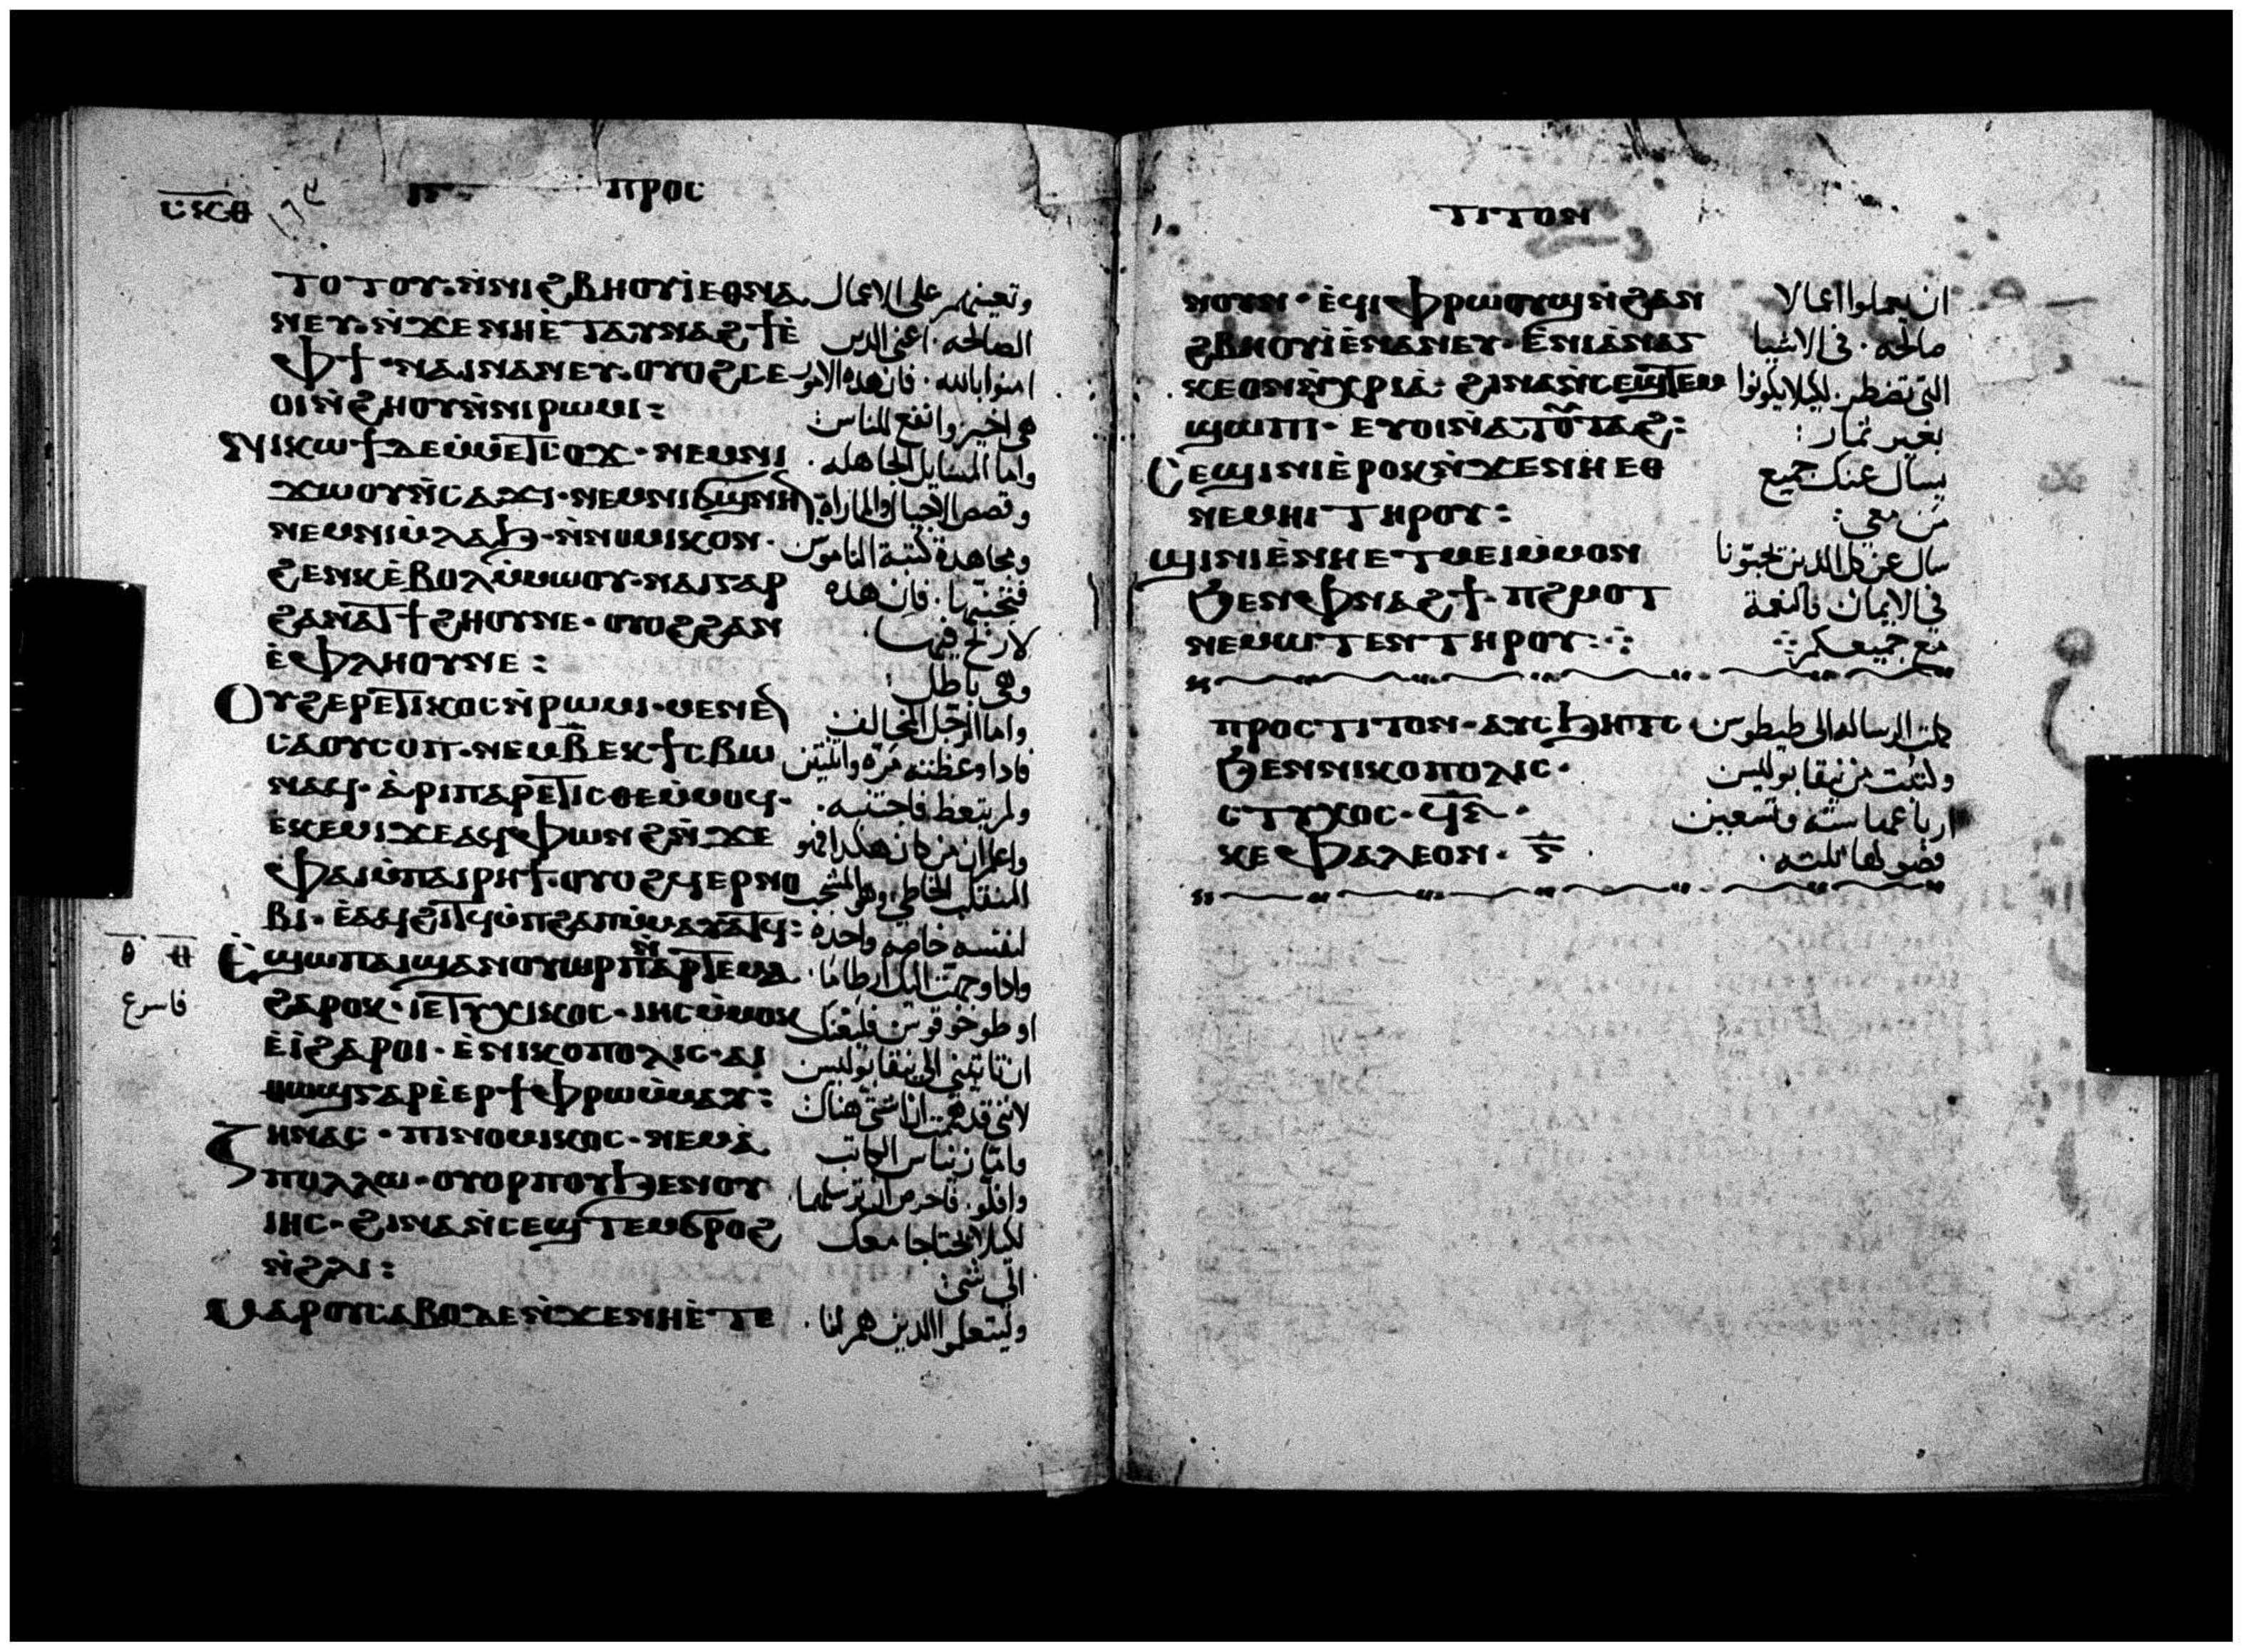 ⲡⲣⲟⲥ
ⲧⲟⲧⲟⲩ·ⲛ̀ⲛⲓϩⲃⲏⲟⲩⲓ̀ⲉⲑⲛⲁ وتعينهم على الاعمال
ⲛⲉⲩ·ⲛ̀ϫⲉⲛⲏⲉ̀ⲧⲁⲩⲛⲁϩϯⲉ̀ الصالحه · اعني الدين
ⲫϯ·ⲛⲁⲓⲛⲁⲛⲉⲩ·ⲟⲩⲟϩⲥⲉ امنوا بالله · فان هده الامور
ⲟⲓⲛ̀ϩⲏⲟⲩⲛ̀ⲛⲓⲣⲱⲙⲓ: هى اخير وانفع للناس:
ⲯⲓⲕⲱϯⲇⲉⲙ̀ⲙⲉⲧⲥⲟϫ·ⲛⲉⲙⲛⲓ واما المسايل الجاهله ·
ϫⲱⲟⲩⲛ̀ⲥⲁϫⲓ·ⲛⲉⲙⲛⲓϭϣⲛⲏⲛ وقصص الاجيال والماراة
ⲛⲉⲙⲛⲓⲙ̀ⲗⲁϧ·ⲛ̀ⲛⲟⲙⲓⲕⲟⲛ· ومجاهدة كتبة الناموس
ϩⲉⲛⲕⲉ̀ⲃⲟⲗⲙ̀ⲙⲱⲟⲩ·ⲛⲁⲓⲅⲁⲣ فتجنبها · فان هده
ϩⲁⲛⲁⲧϯϩⲏⲟⲩⲛⲉ·ⲟⲩⲟϩϩⲁⲛ لا ربح فيها ·
ⲉ̀ⲫⲗⲏⲟⲩⲛⲉ: وهى باطل:
ⲟⲩϩⲉⲣⲉⲧⲓⲕⲟⲥⲛ̀ⲣⲱⲙⲓ·ⲙⲉⲛⲉⲛ واما الرجل المخالف
ⲥⲁⲟⲩⲥⲟⲡ·ⲛⲉⲙⲃ̅ⲉⲕϯⲥⲃⲱ فادا وعظته مرة واثنتين
ⲛⲁϥ·ⲁ̀ⲣⲓⲡⲁⲣⲉⲧⲓⲥⲑⲉⲙ̀ⲙⲟϥ· ولم يتعظ فاجتنبه ·
ⲉⲕⲉⲙⲓϫⲉⲁϥⲫⲱⲛϩⲛ̀ϫⲉ واعلم ان من كان هكدا فهو
ⲫⲁⲓⲙ̀ⲡⲁⲓⲣⲏϯ·ⲟⲩⲟϩϥⲉⲣⲛⲟ المنقلب الخاطى وهو المشجب
ⲃⲓ·ⲉ̀ⲁϥϩⲓⲧϥⲙ̀ⲡϩⲁⲡⲙ̀ⲙⲁⲩⲁⲧϥ: لنفسه خاصه واحده
ⲉ̀ϣⲱⲡⲁⲓϣⲁⲛⲟⲩⲱⲣⲡⲛ̀ⲁⲣⲧⲉⲙⲁ وادا وجهت اليك ارطاما ·
ϩⲁⲣⲟⲕ·ⲓⲉⲧⲩⲭⲓⲕⲟⲥ·ⲓⲏⲥⲙ̀ⲙⲟⲕ او طوخوقوس فليعنك
فاسرع
ⲉ̀ⲓ̀ϩⲁⲣⲟⲓ·ⲉ̀ⲛⲓⲕⲟⲡⲟⲗⲓⲥ·ⲁⲓ ان تاتيني الى نيقابوليس
ⲑⲱϣⲅⲁⲣⲉ̀ⲉⲣϯⲫⲣⲱⲙ̀ⲙⲁⲩ: لانني قد هممت ان اشتى هناك
ⲍⲏⲛⲁⲥ·ⲡⲓⲛⲟⲙⲓⲕⲟⲥ·ⲛⲉⲙⲁ̀ واما زيناس الكاتب
ⲡⲟⲗⲗⲱ·ⲟⲩⲟⲣⲡⲟⲩϧⲉⲛⲟⲩ وافلو ·
ⲓⲏⲥ·ϩⲓⲛⲁⲛ̀ⲥⲉϣⲧⲉⲙϭⲣⲟϩ لكيلا يحتاجا معك
ⲛ̀ϩⲗⲓ: الى شى:
ⲙⲁⲣⲟⲩⲥⲁⲃⲟⲇⲉⲛ̀ϫⲉⲛⲏⲉ̀ⲧⲉ وليتعلموا الدين هم لنا ·
ⲧⲓⲧⲟⲛ
ⲛⲟⲩⲛ·ⲉ̀ϥⲓⲫⲣⲱⲟⲩϣⲛ̀ϩⲁⲛ ان يعملوا اعمالا
ϩⲃⲏⲟⲩⲓ̀ⲉ̀ⲛⲁⲛⲉⲩ·ⲉ̀ⲛⲓⲁ̀ⲛⲁⲅ صالحه · فى الاشيا
ⲕⲉⲟⲛⲛ̀ⲭⲣⲓⲁ̀·ϩⲓⲛⲁⲛ̀ⲥⲉϣⲧⲉⲙ التى تضطر · لكيلا يكونوا
ϣⲱⲡⲓ·ⲉⲩⲟⲓⲛ̀ⲁⲧⲟⲩⲧⲁϩ: بغير ثمار:
ⲥⲉϣⲓⲛⲓⲉ̀ⲣⲟⲕⲛ̀ϫⲉⲛⲏⲉⲑ يسال عنك جميع
ⲛⲉⲙⲏⲓⲧⲏⲣⲟⲩ: من معى:
ϣⲓⲛⲓⲉ̀ⲛⲏⲉ·ⲧⲙⲉⲓⲙ̀ⲙⲟⲛ سال عن كل الدين يحبونا
ϧⲉⲛⲫⲛⲁϩϯ·ⲡϩⲙⲟⲧ فى الايمان فالنعمة
ⲛⲉⲙⲱⲧⲉⲛⲧⲏⲣⲟⲩ:·⁘ مع جميعكم ⁘
ⲡⲣⲟⲥⲧⲓⲧⲟⲛ·ⲁⲩⲥϧⲏⲧⲥ كملت الرساله الى طيطوس
ϧⲉⲛⲛⲓⲕⲟⲡⲟⲗⲓⲥ· وكتبت من نيقابوليس
ⲥⲧⲩⲭⲟⲥ·ϥ̅ⲋ̅· سته وتسعين
ⲕⲉⲫⲁⲗⲉⲟⲛ·ⲅ̅ فصولها ثلثه ·